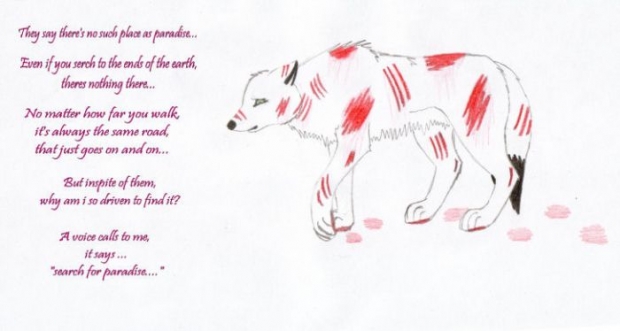 They say there's no such place as paradise...
Even if you serch to the ends of the earth,
theres nothing there...
No matter how far you walk,
it's always the same road,
that just goes on and on...
But inspite of them,
why am i so driven to find it?
A voice calls to me,
it says ...
"search for paradise...."